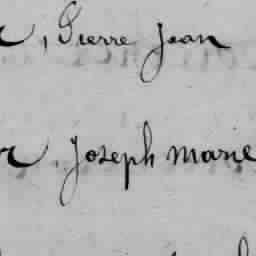 , Pierre Jean
r, Joseph Marie